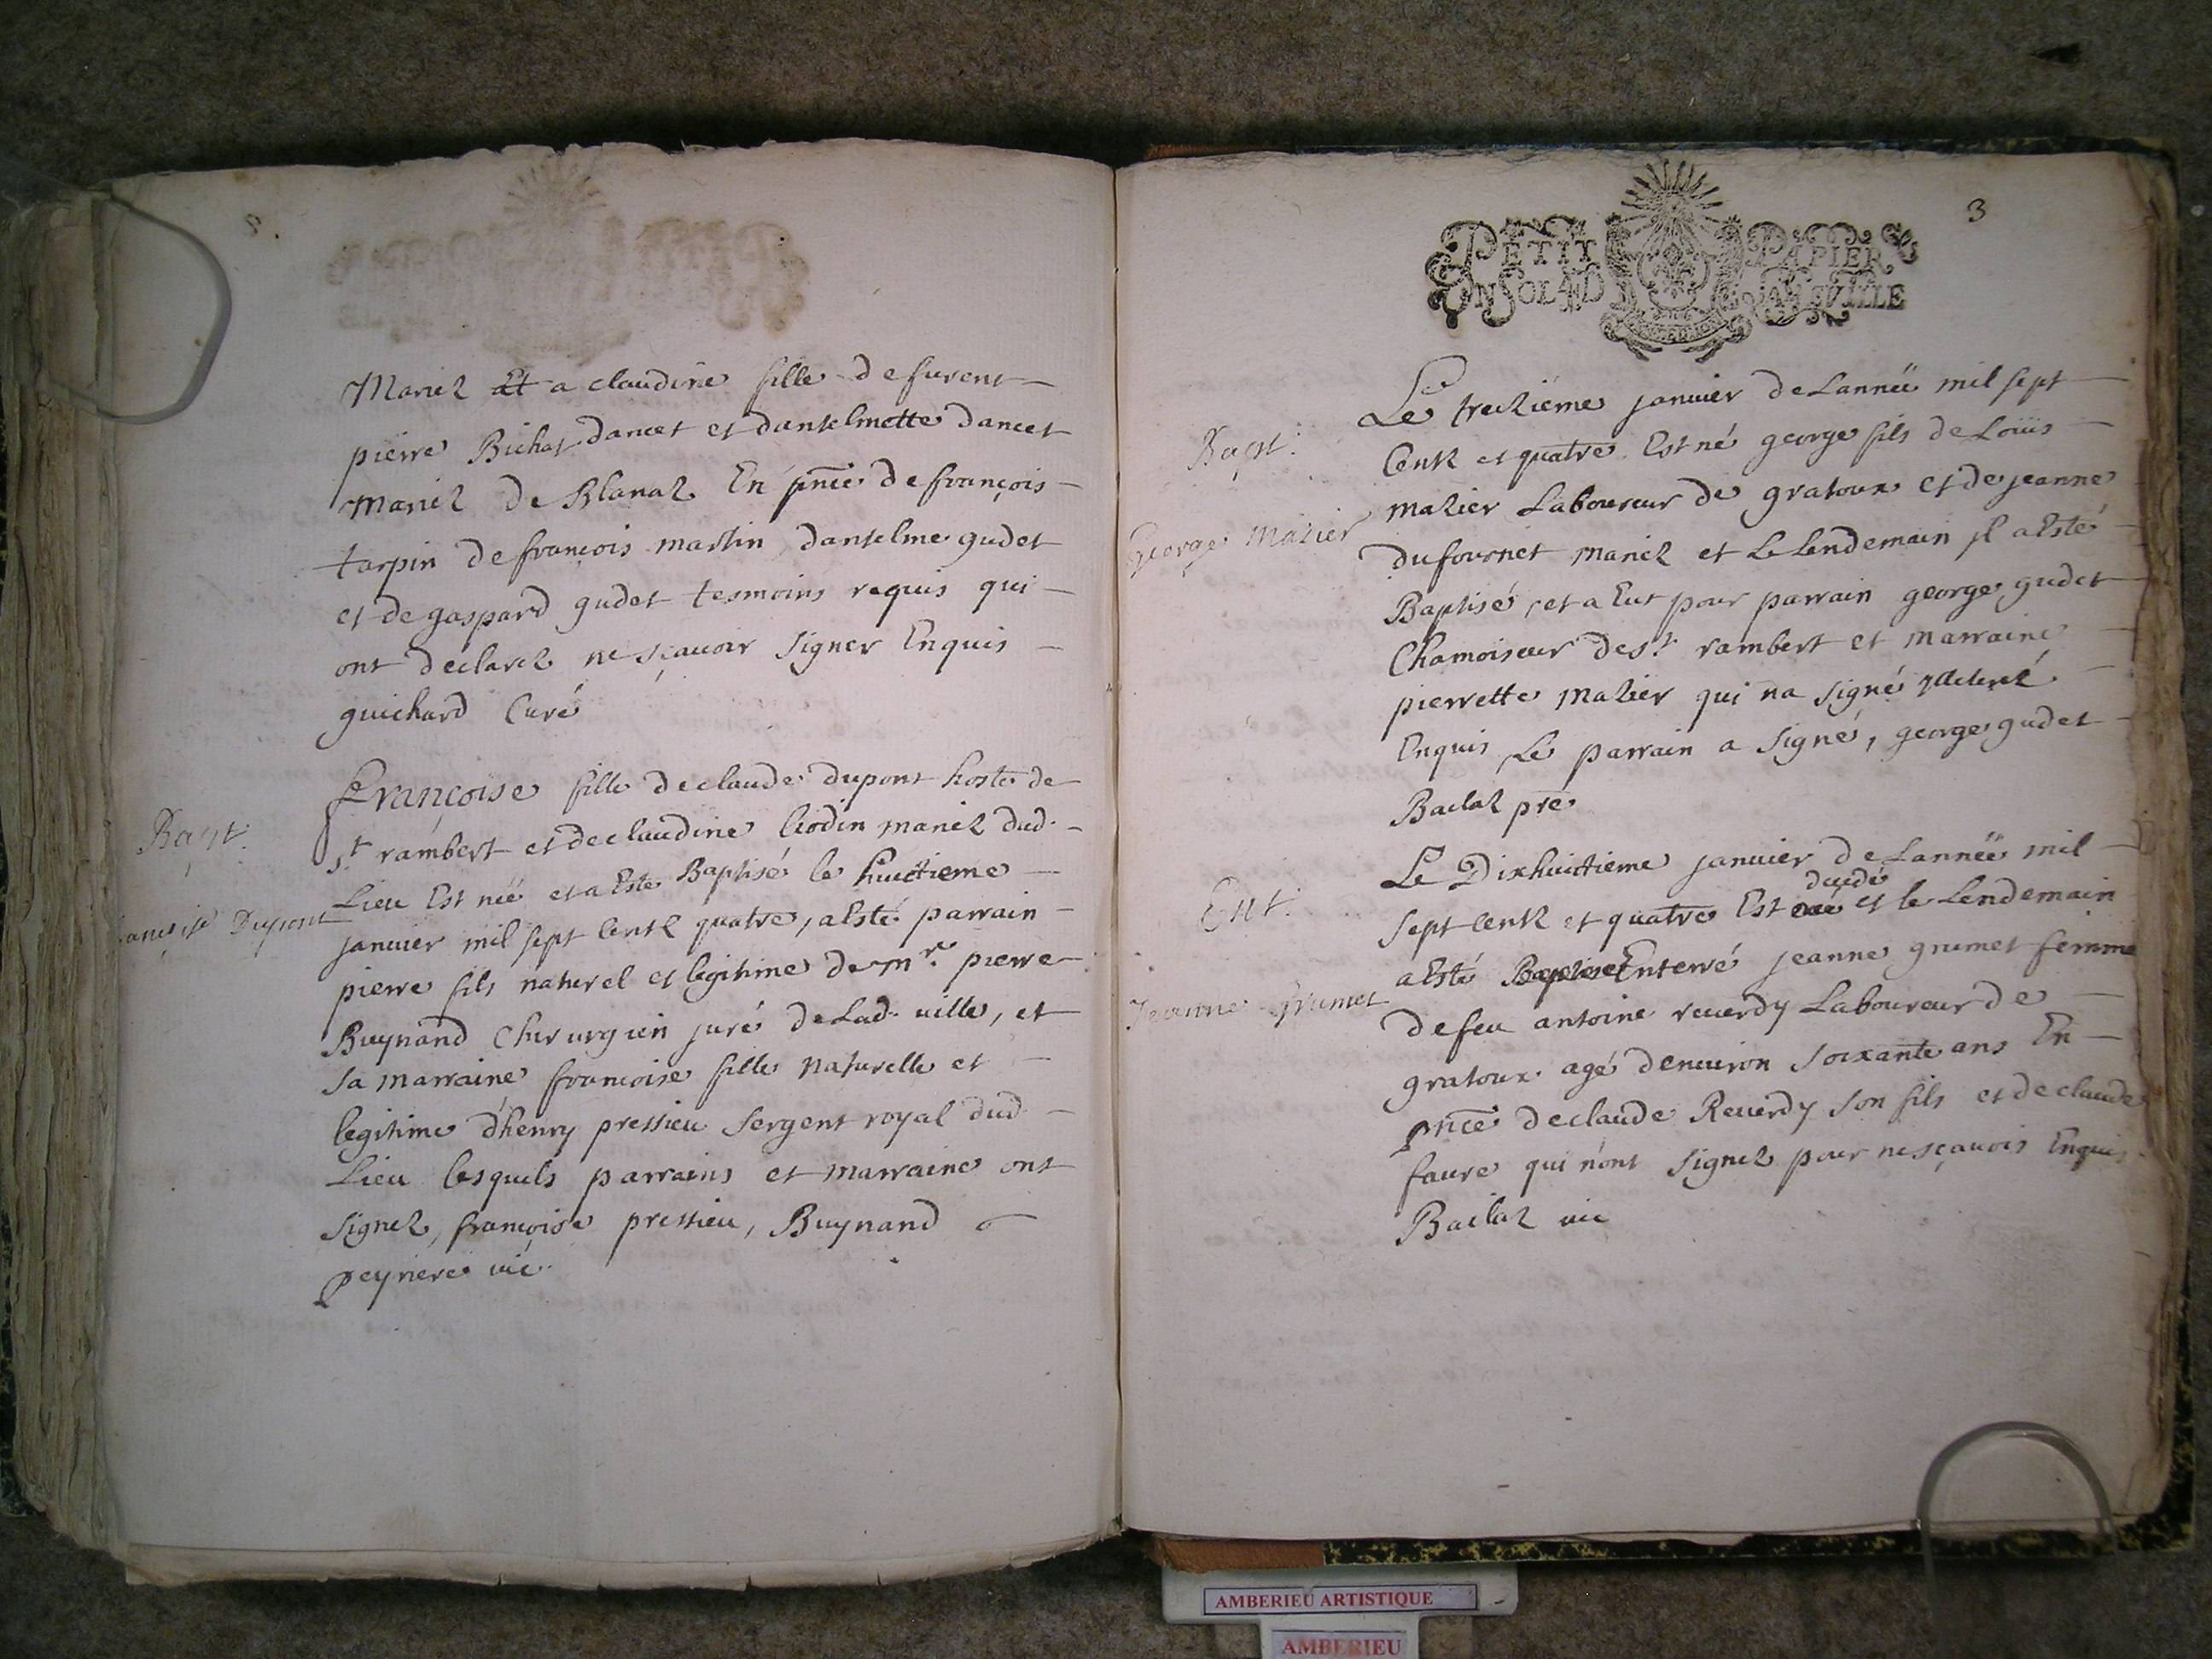 Mariez Et a claudine fille defurent
pierre Bichat dancet et dantelmette dancet
mariez de Blanaz En pnce de françois
tarpin de francois martin dantelme gudet
et de gaspard gudet tesmoins requis qui
ont declarez ne sçauoir signer Enquis
guichard Curé
Bapt:
ancoise Dupont
Françoise fille declaude dupont hoste de
st rambert et declaudine liodin mariez dud.
Lieu Est néé et a Esté Baptisé le huictieme
januier mil sept Centz quatre, a Esté parrain
pierre fils naturel et legitime de mre. pierre
Buynand Chirurgien juré de Lad. uille, et
sa marraine francoise fille naturelle et
legitime d'henry pressieu sergent royal dud
Lieu lesquels parrains et marraine ont
signez, françoise pressieu, Buynand
peyriere uic.
3
PETIT PAPIER
UN SOL 4 D LA FEUILLE
Bapt:
George Mazier
Le treizième januier de Lannéé mil sept
Centz et quatre Est né george fils de Loüis
mazier Laboureur de gratoux et de jeanne
dufournet mariez et Le lendemain jl a Esté
Baptisé, et a Eut pour parrain george gudet
Chamoiseur de st. rambert et marraine
pierrette mazier qui na signé
Enquis Le parrain a signé, george gudet
Baclaz pre
Ent:
Jeanne Grumet
Le Dixhuictieme januier de Lannéé mil
sept Centz et quatre Est decedé et le Lendemain
a Esté Enterré jeanne grumet femme
de feu antoine reuerdy Laboureur de
gratoux agé denuiron soixante ans En
pnce declaude Reuerdy son fils et declaude
faure qui n'ont signez pour ne sçauois Enquis
Baclaz uic
AMBERIEU ARTISTIQUE
AMBERIEU